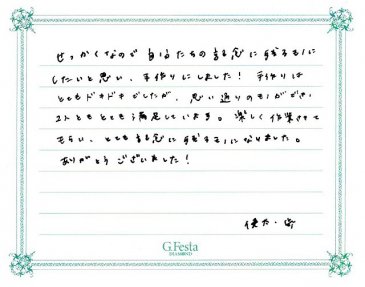 せっかくなので自分たちの記念に残るモノに
したいと思い、手作りにしました！手作りは
とてもドキドキでしたが、思い通りのモノができ、
2人ともとても満足しています。楽しく作業させて
もらい、とても記念に残るモノになりました。
ありがとうございました！
G.Festa
DIAMOND